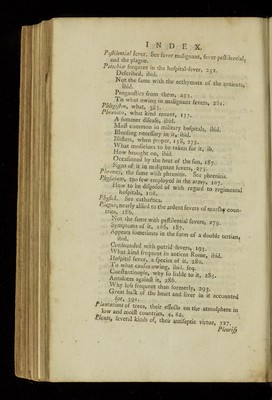 INDEX.
Pestilential fever. See fever malignant, fever pestilential,
and the plague.
Petechiæ frequent in the hospital-fever, 251.
Described, ibid.
Not the same with the ecthymata of the antients,
ibid.
Prognostics from them, 252.
To what owing in malignant fevers, 281.
Phlogiston, what, 323.
Phrenitis, what kind meant, 137.
A summer disease, ibid.
Most common in military hospitals, ibid.
Bleeding necessary in it, ibid.
Blisters, when proper, 138, 275.
What medicines to be taken for it, ib.
How brought on, ibid.
Occasioned by the heat of the sun, 187.
Signs of it in malignant fevers, 275.
Phrensy, the same with phrenitis. See phrenitis.
Physicians, too few employed in the army, 107.
How to be disposed of with regard to regimental
hospitals, 108.
Physick. See cathartics.
Plague, nearly allied to the ardent fevers of marshy coun-
tries, 186.
Not the same with pestilential fevers, 279.
Symptoms of it, 186, 187.
Appears sometimes in the form of a double tertian,
ibid.
Confounded with putrid fevers, 193.
What kind frequent in antient Rome, ibid.
Hospital fever, a species of it, 280.
To what causes owing, ibid. seq.
Constantinople, why so liable to it, 285.
Antidotes against it, 286.
Why less frequent than formerly, 293.
Great bulk of the heart and liver in it accounted
for, 391.
Plantations of trees, their effects on the atmosphere in
low and moist countries, 4, 62.
Plants, several kinds of, their antiseptic virtue, 127.
Pleurisy